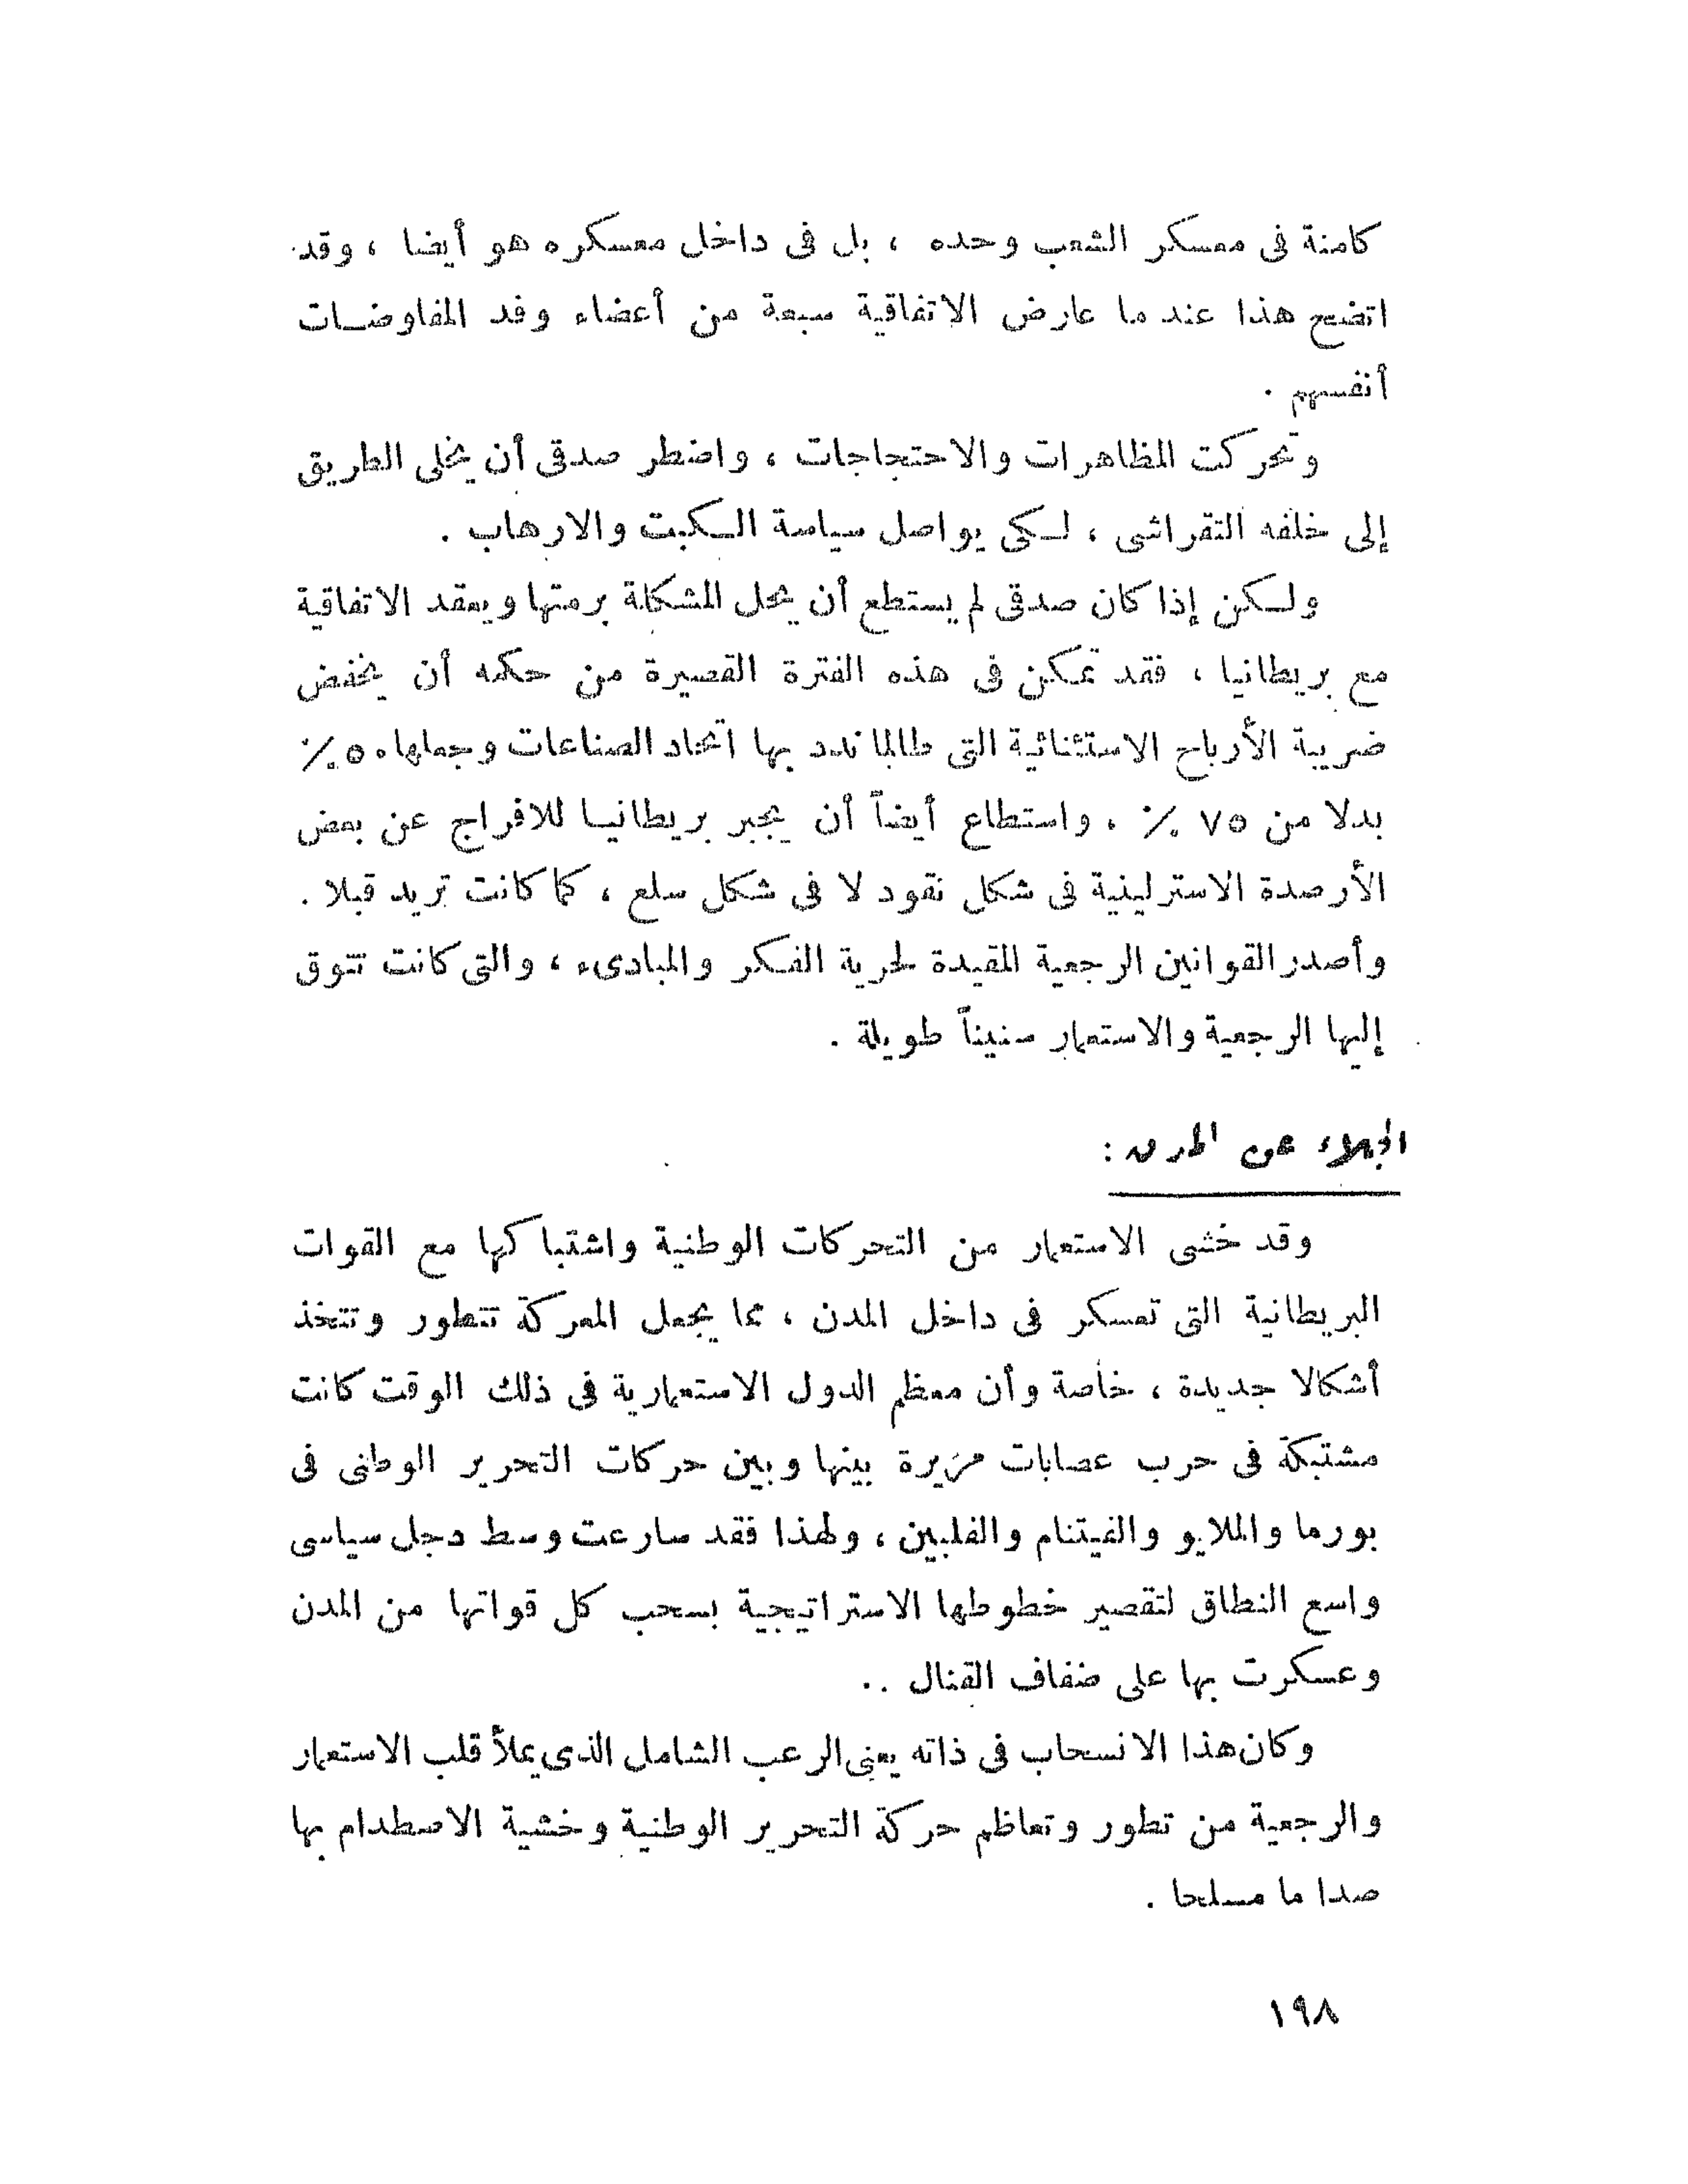 كامنة فى معسكر الشعب وحده ، بل فى داخل معسكره هو أيضا ، وقد
اتضح هذا عند ما عارض الاتفاقية سبعة من أعضاء وفد المفاوضات
أنفسهم .
وتحركت المظاهرات والاحتجاجات ، واضطر صدقى أن يخلى الطريق
إلى خلفه النقراشى ، لكى يواصل سياسة الكبت والارهاب .
ولكن إذا كان صدقى لم يستطع أن يحل المشكلة برمتها ويعقد الاتفاقية
مع بريطانيا ، فقد تمكن فى هذه الفترة القصيرة من حكمه أن يخفض
ضريبة الأرباح الاستثنائية التى طالما ندد بها اتحاد الصناعات وجعلها ٥٠٪
بدلا من ٧٥ ٪ . واستطاع أيضاً أن يجبر بريطانيا للافراج عن بعض
الأرصدة الاسترلينية فى شكل نقود لا فى شكل سلع ، كما كانت تريد قبلا .
وأصدر القوانين الرجعية المقيدة لحرية الفكر والمبادىء ، والتى كانت تتوق
إليها الرجعية والاستعمار سنيناً طويلة .
الجلاء عن المدن :
وقد خشى الاستعمار من التحركات الوطنية واشتباكها مع القوات
البريطانية التى تعسكر فى داخل المدن ، مما يجعل المعركة تتطور وتتخذ
أشكالا جديدة ، خاصة وأن معظم الدول الاستعمارية فى ذلك الوقت كانت
مشتبكة فى حرب عصابات مريرة بينها وبين حركات التحرير الوطنى فى
بورما والملايو والفيتنام والفلبين ، ولهذا فقد سارعت وسط دجل سياسى
واسع النطاق لتقصير خطوطها الاستراتيجية بسحب كل قواتها من المدن
وعسكرت بها على ضفاف القنال ..
وكان هذا الانسحاب فى ذاته يعنى الرعب الشامل الذى يملأ قلب الاستعمار
والرجعية من تطور وتعاظم حركة التحرير الوطنية وخشية الاصطدام بها
صدا ما مسلحا .
١٩٨